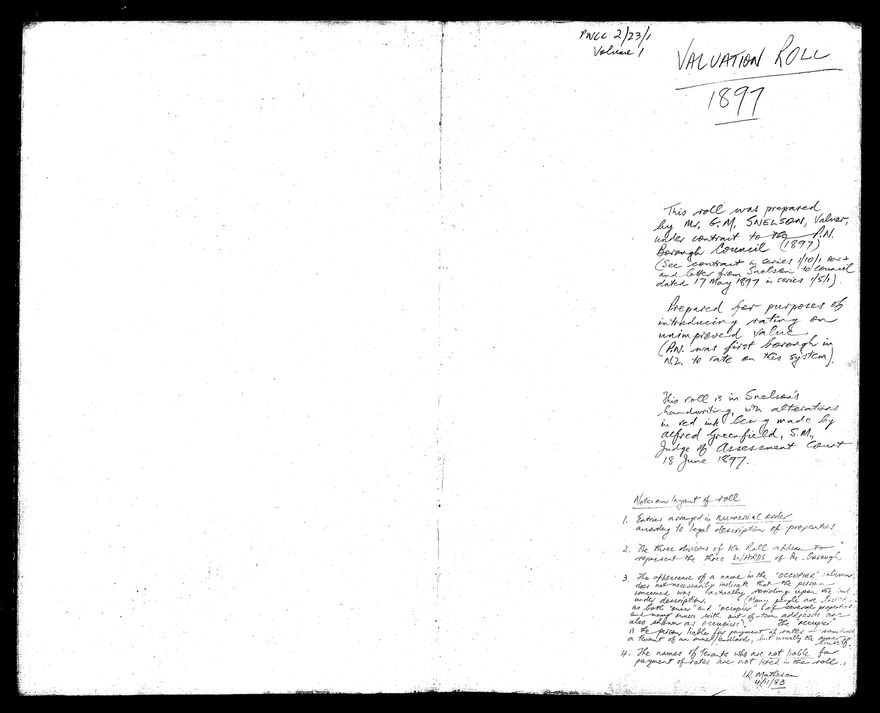 PNCC 2/23/1
Volume 1
VALUATION ROLL
1897
This roll was prepared
by Mr. G.M. SNELSON, Valuer,
under contract to the P.N.
Borough Council (1897)
(See contract in series 1/10/1 box 2
and letter from Snelson to council
dated 17 May 1897 in series 1/5/1).
Prepared for purposes of
introducing rating on
unimproved value
(P.N. was first borough in
N.Z. to rate on this system).
This roll is in Snelson's
handwriting, with alterations
in red ink being made by
Alfred Greenfield, S.M.,
Judge of Assessment Court
18 June 1897.
Notes on layout of roll
1. Entries arranged in numerical order
according to legal description of properties
2. The three divisions of the Roll
represent the three WARDS of the Borough
3. The appearance of a name in the "OCCUPIER" column
does not necessarily indicate that the person
concerned was actually residing upon the land
under description. (Many people are listed
as both "owner" and "occupier" of several properties
and many owners with out-of-town addresses are
also shown as occupiers). The "occupier"
is the person liable for payment of rates - sometimes
a tenant of an owner/landlord, but usually the owner
himself.
4. The names of tenants who are not liable for
payment of rates are not listed in the roll.
Matheson
4/11/83